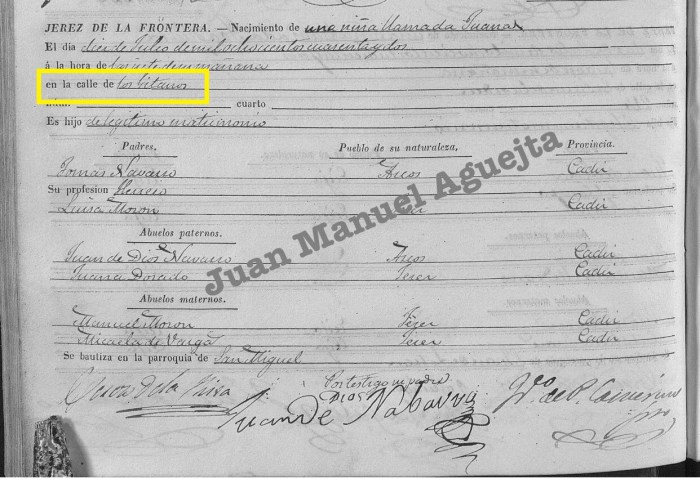 JEREZ DE LA FRONTERA. — Nacimiento de una niña llamada Juana
El dia diez de Julio de mil ochocientos cuarenta y dos
á la hora de las siete de su mañana
en la calle de los Gitanos
núm. cuarto
Es hijo de legitimo matrimonio
Padres. Pueblo de su naturaleza. Provincia.
Tomás Navarro Arcos Cadiz
Su profesion Herrero
Luisa Moron Cadiz
Abuelos paternos.
Juan de Dios Navarro Arcos Cadiz
Juana Dorado Jerez Cadiz
Abuelos maternos.
Manuel Moron Jerez Cadiz
Micaela de Varga Jerez Cadiz
Se bautiza en la parroquia de San Miguel
Por testigo su padre
DIOS
Juan DE Nabarro
Juan Manuel Aguejta